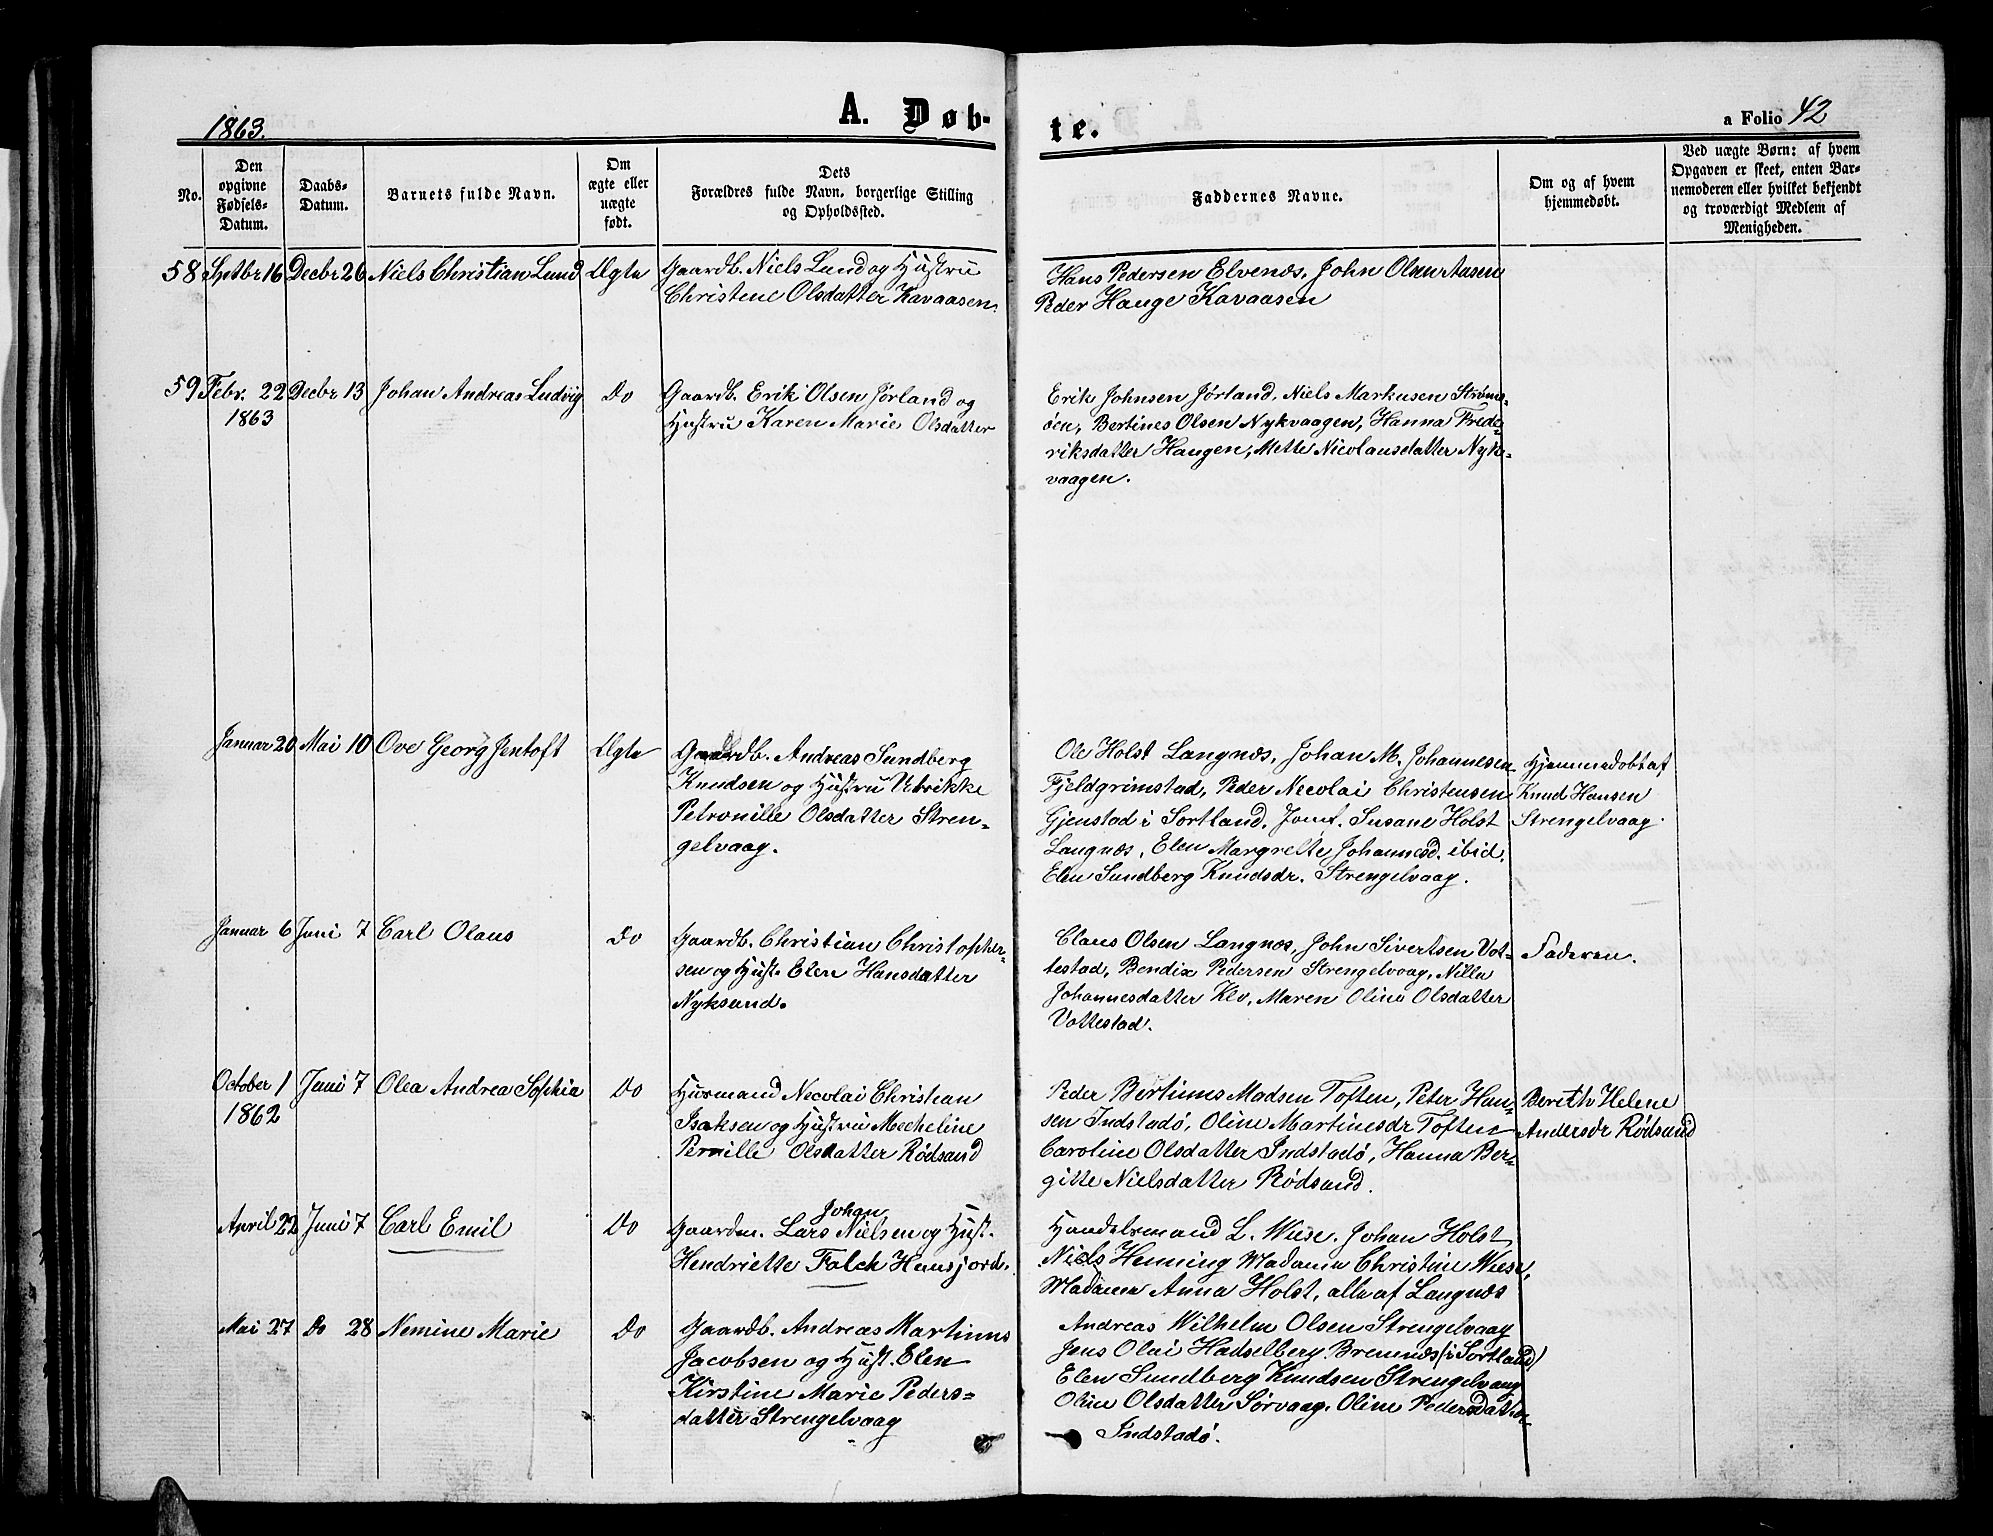 1863.
A. Døb-
te.
a Folio 42
No.
Den
opgivne
Fødsels-
Datum.
Daabs-
Datum.
Barnets fulde Navn.
Om
ægte eller
uægte
født.
Dets
Forældres fulde Navn, borgerlige Stilling
og Opholdssted.
Faddernes Navne.
Om og af hvem
hjemmedøbt.
Ved uægte Børn: af hvem
Opgaven er skeet, enten Bar-
nemoderen eller hvilket bekjendt
og troværdigt Medlem af
Menigheden.
58 Sptbr 16 Decbr 26 Niels Christian Lund Ægte
Gaardb. Niels Lund og Hustru
Christene Olsdatter Kavaasen.
Hans Pedersen Elvenæs, John Olsen Aasen
Peder Hauge Kavaasen
59 Febr. 22 Decbr 13 Johan Andreas Ludvig Do
1863
Gaardb. Erik Olsen Jørland og
Hustru Karen Marie Olsdatter
Erik Johnsen Jørland, Niels Markusen Strøms-
øen, Bertines Olsen Nykvaagen, Hanna Frede-
riksdatter Haugen, Mette Nicolausdatter Nyk-
vaagen.
Januar 20 Mai 10 Ove Georg Jentoft Ægte
Gaardb. Andreas Sundberg
Knudsen og Hustru Ulrikke
Petronille Olsdatter Stren-
gelvaag.
Ole Holst Langnæs, Johan M. Johannesen
Fjeldgrimstad, Peder Necolai Christensen
Gjenstad i Sortland. Jomf. Susane Holst
Langnæs, Elen Margrette Johannesd. ibid.
Elen Sundberg Knudsdr. Strengelvaag.
Hjemmedøbt af
Knud Hansen
Strengelvaag.
Januar 6 Juni 7 Carl Olaus Do
Gaardb. Christian Christopher-
sen og Hust. Elen Hansdatter
Nyksund.
Claus Olsen Langnæs, John Sivertsen Vot-
testad, Bendix Pedersen Strengelvaag, Nilla
Johannesdatter Klo, Maren Oline Olsdatter
Vottestad.
Faderen.
October 1 Juni 7 Olea Andrea Sophia Do
1862
Husmand Necolai Christian
Isaksen og Hustru Mecheline
Pernille Olsdatter Rødsand
Peder Bertinus Madsen Toften, Peter Han-
sen Indstadø, Oline Martinesdr Toften
Caroline Olsdatter Indstadø, Hanna Ber-
gitte Nielsdatter Rødsand.
Bereth Helene
Andersdr Rødsand
April 22 Juni 7 Carl Emil Do
Johan
Gaardm. Lars Nielsen og Hust.
Hendriette Falch Hausjord.
Handelsmand L. Wiese. Johan Holst
Niels Henning Madame Christine Wiese,
Madame Anna Holst, alle af Langnæs
Mai 27 Do 28 Nemine Marie Do
Gaardb. Andreas Martinus
Jacobsen og Hust. Elen
Kirstine Marie Peders-
datter Strengelvaag
Andreas Wilhelm Olsen Strengelvaag
Jens Olai Hadselberg Bremnæs (i Sortland)
Elen Sundberg Knudsen Strengelvaag
Oline Olsdatter Sørvaag. Oline Pedersdatter
Indstadø.